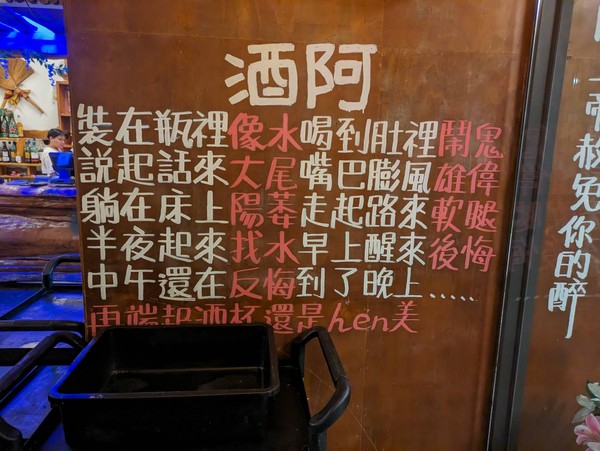 酒阿
裝在瓶裡像水喝到肚裡鬧鬼
說起話來大尾嘴巴膨風雄偉
躺在床上陽萎走起路來軟腿
半夜起來找水早上醒來後悔
中午還在反悔到了晚上.....
再端起酒杯還是hen美
帝赦免你的醉